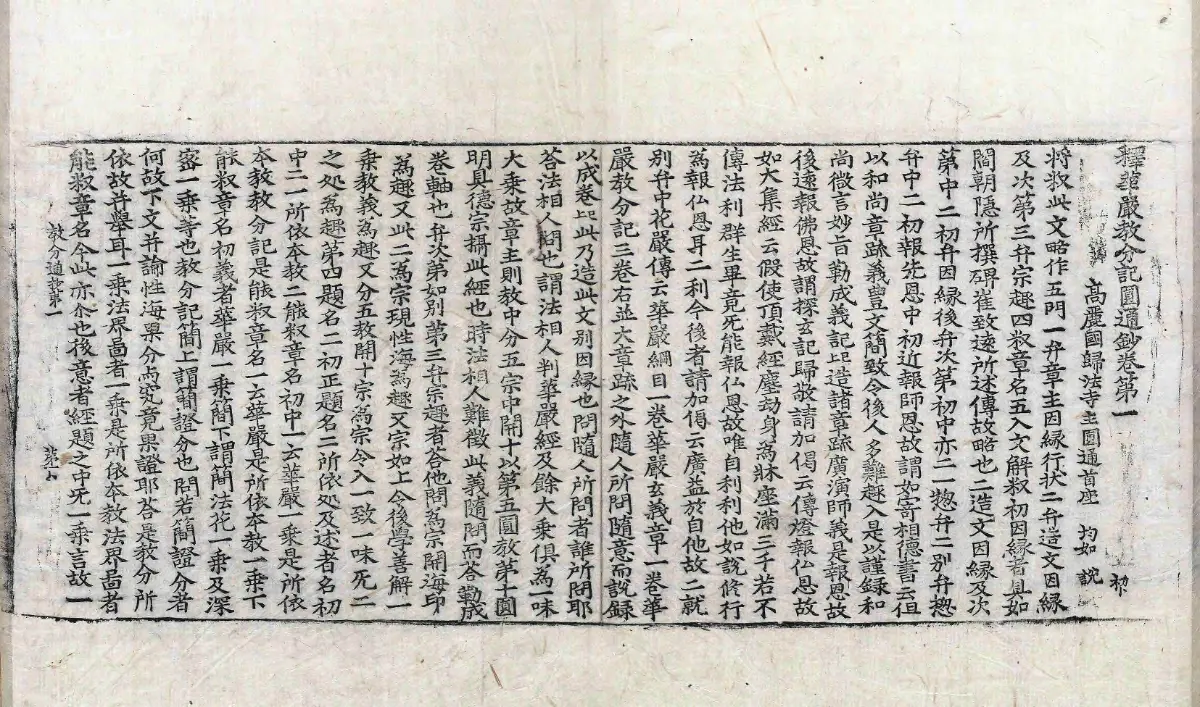 釋華嚴教分記圓通鈔卷第一
高麗國歸法寺主圓通首座 均如 說 初
將釈此文略作五門一弁章主因緣行狀二弁造文因緣
及次第三弁宗趣四釈章名五入文解釈初因緣者具如
閻朝隱所撰碑崔致遠所述傳故略也二造文因緣及次
第中二初弁因緣後弁次第初中亦二一惣弁二別弁惣
弁中二初報先恩中初近報師恩故謂如寄相德書云但
以和尚章䟽義豊文簡致令後人多難趣入是以謹録和
尚微言妙旨勒成義記近造諸章䟽廣演師義是報恩故
後遠報佛恩故謂探玄記歸敬請加偈云傳燈報仏恩故
如大集經云假使頂戴經塵劫身為牀座滿三千若不
傳法利群生畢竟旡能報仏恩故唯自利利他如說修行
為報仏恩耳二利今後者請加偈云廣益於自他故二就
別弁中花嚴傳云華嚴綱目一卷華嚴玄義章一卷華
嚴教分記三卷右並大章䟽之外隨人所問隨意而說録
以成卷此乃造此文別因緣也問隨人所問者誰所問耶
荅法相人問也謂法相人判華嚴經及餘大乗俱為一味
大乗故章主則教中分五宗中開十以第五圓教第十圓
明具德宗攝此經也時法相人難徵此義隨問而荅勒成
卷軸也弁次第如別第三弁宗趣者荅他問為宗開海印
為趣又此二為宗現性海為趣又宗如上令後學善解一
乗教義為趣又分五教開十宗為宗令入一致一味旡二
之處為趣第四題名二初正題名二所依處及述者名初
中二一所依本教二能釈章名初中一云華嚴一乗是所依
本教教分記是能釈章名一云華嚴是所依本教一乗下
能釈章名初義者華嚴一乗簡下謂簡法花一乗及深
宻一乗等也教分記簡上謂簡證分也問若簡證分者
何故下文弁論性海果分尚究竟果證耶荅是教分所
依故弁舉耳一乗法界啚者一乗是所依本教法界啚者
能釈章名今此亦尒也後意者經題之中旡一乗言故一
教分通鈔第一